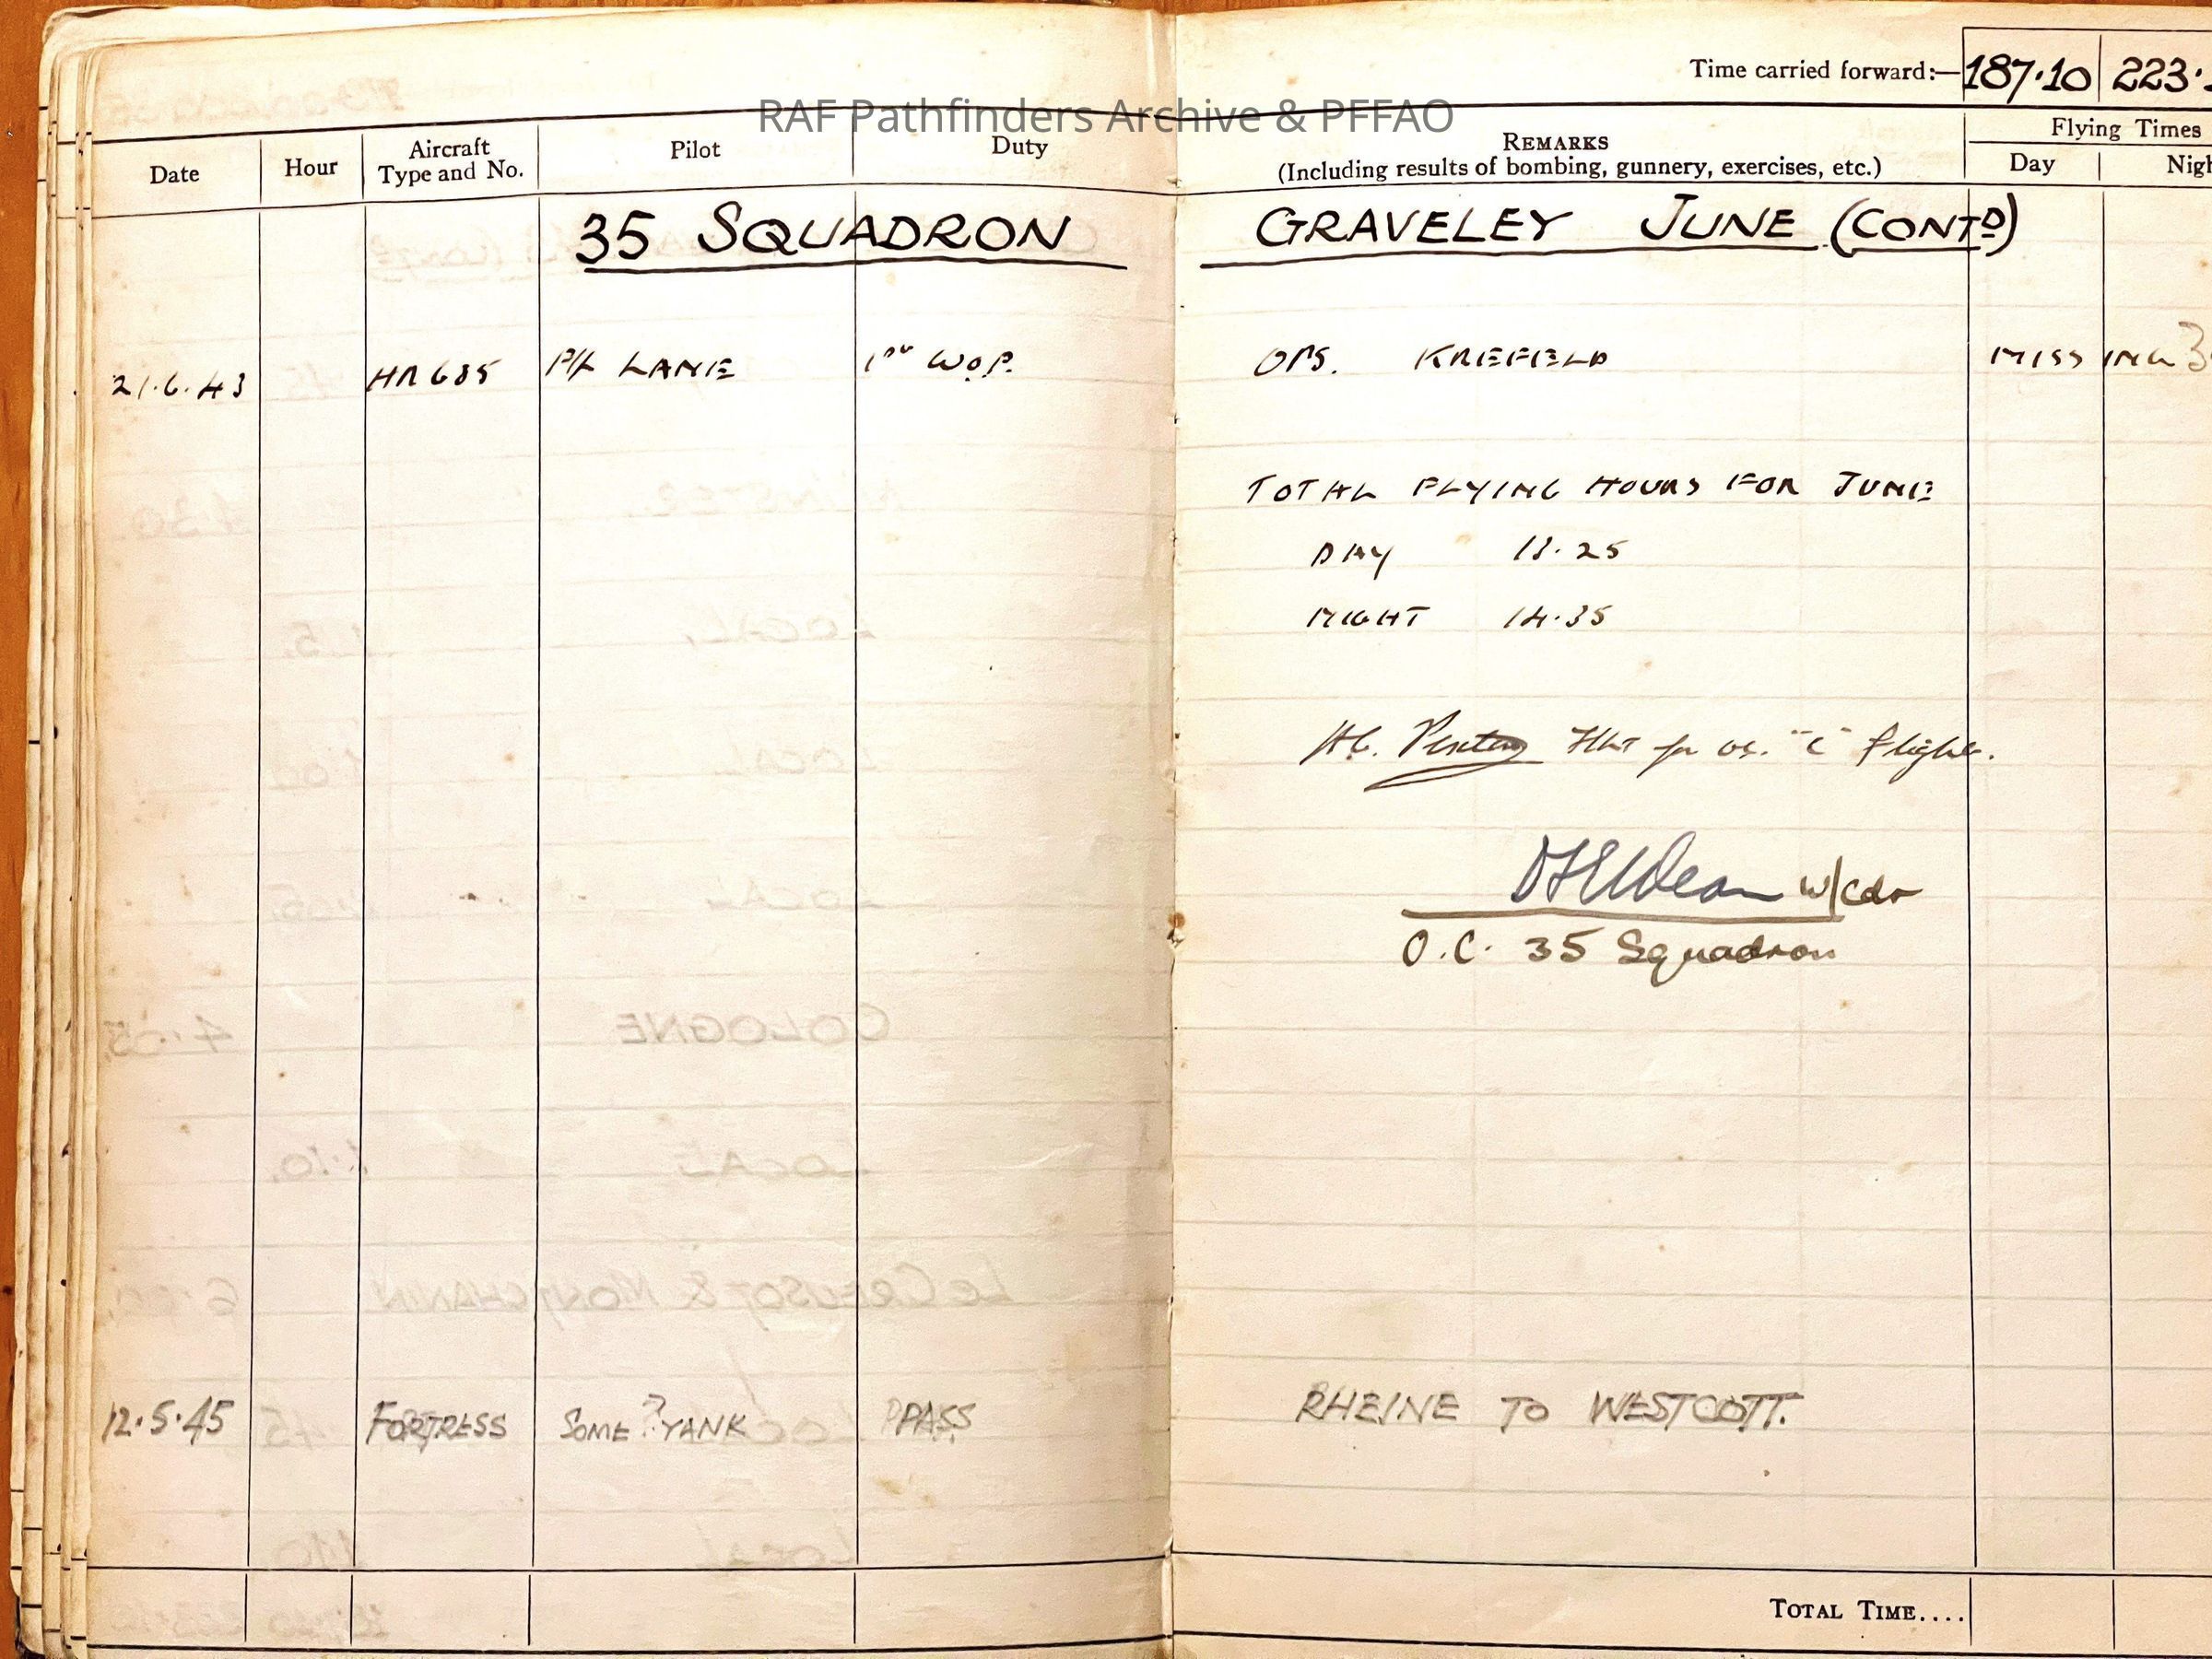 Time carried forward:— 187·10 223·
RAF Pathfinders Archive & PFFAO
Date Hour Aircraft Type and No. Pilot Duty REMARKS (Including results of bombing, gunnery, exercises, etc.) Flying Times Day Nigh
35 SQUADRON GRAVELEY JUNE (CONTD)
21·6·43 HR685 P/L LANE 1st W.O.P. OPS. KREFELD MISSING 3
TOTAL FLYING HOURS FOR JUNE
DAY 18·25
NIGHT 14·35
for oc. "C" flight.
W/Cdr
O.C. 35 Squadron
12·5·45 FORTRESS SOME ? YANK PASS RHEINE TO WESTCOTT.
TOTAL TIME....